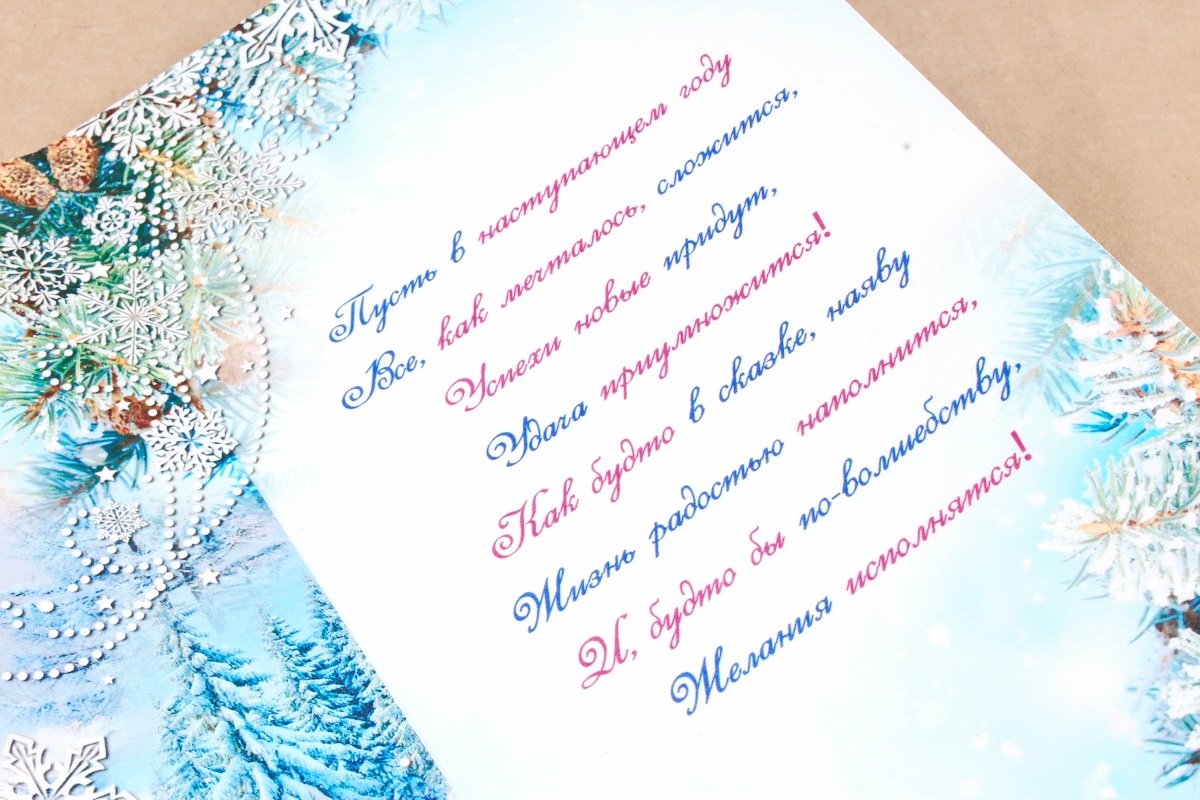 Пусть в наступающем году
Все, как мечталось, сложится,
Успехи новые придут,
Удача приумножится!
Как будто в сказке, наяву
Жизнь радостью наполнится,
И, будто бы по-волшебству,
Желания исполнятся!